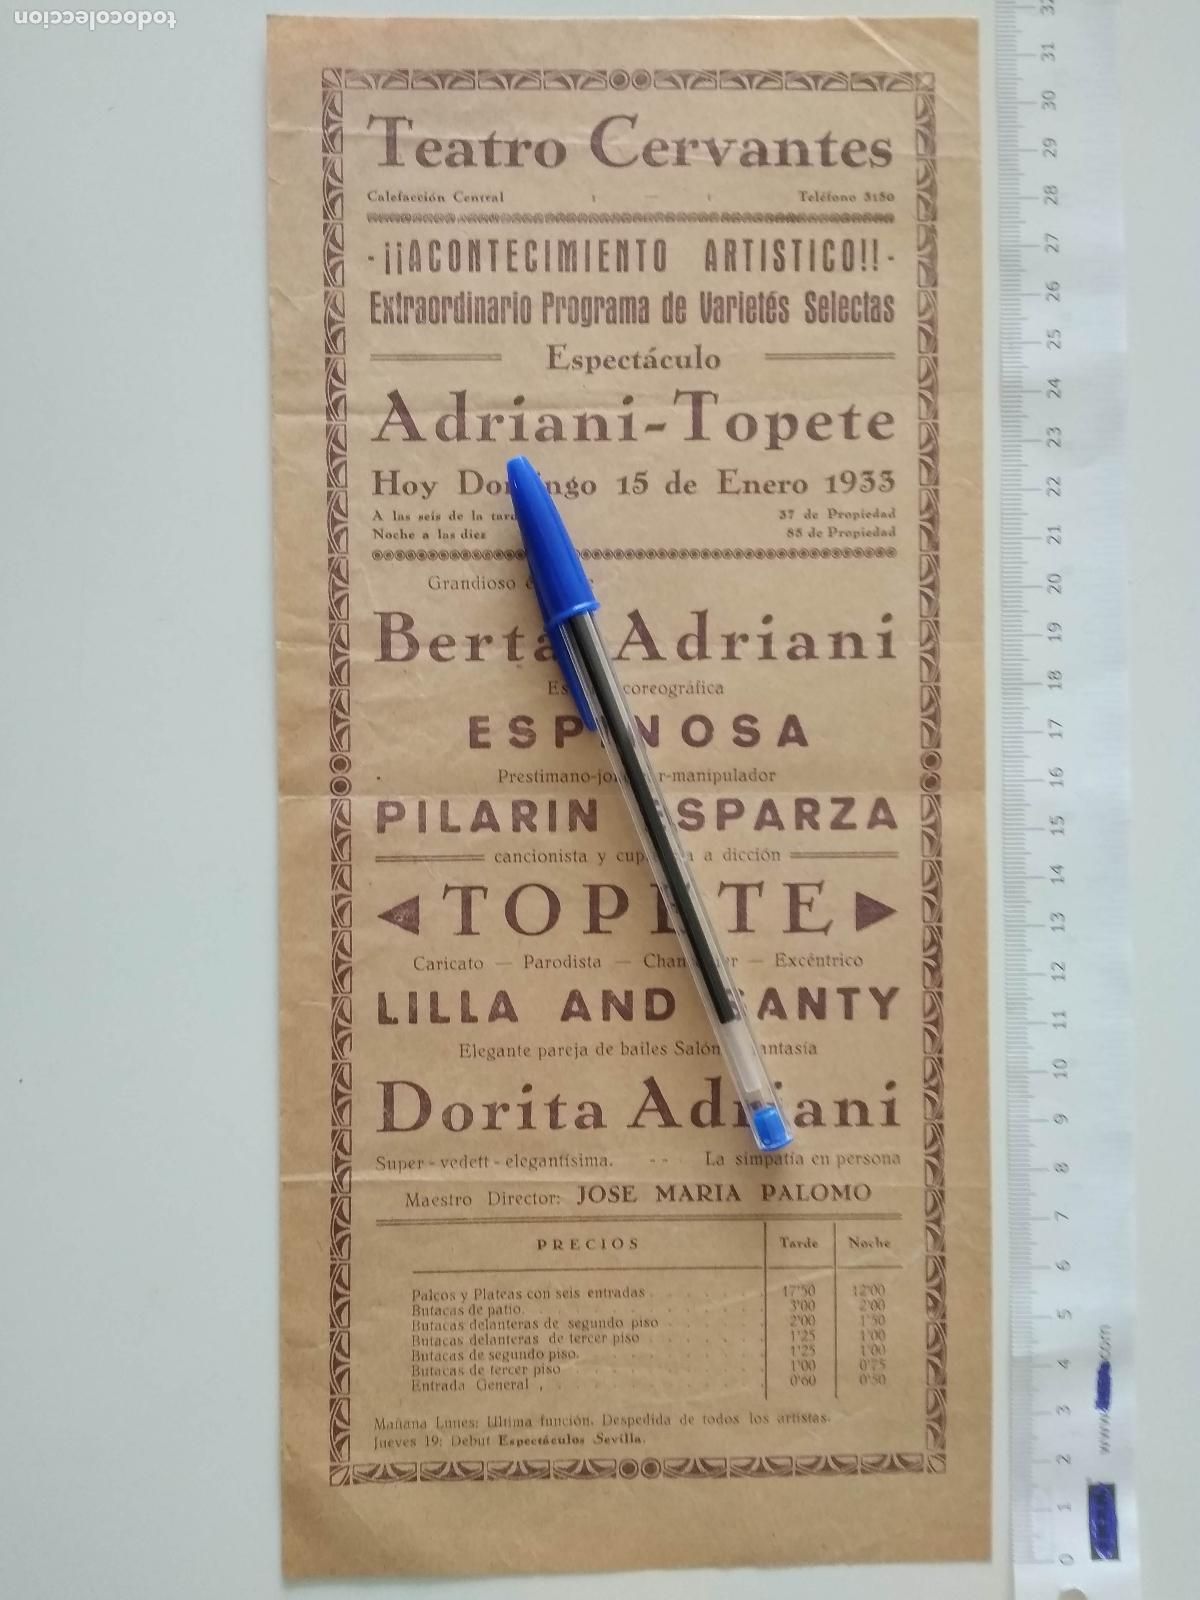 todocoleccion
Teatro Cervantes
Calefacción Central Teléfono 3150
- ¡¡ACONTECIMIENTO ARTISTICO!! -
Extraordinario Programa de Varietés Selectas
Espectáculo
Adriani-Topete
Hoy Domingo 15 de Enero 1933
A las seis de la tarde 37 de Propiedad
Noche a las diez 85 de Propiedad
Grandioso
Berta Adriani
coreográfica
ESPINOSA
Prestimano- -manipulador
PILARIN ESPARZA
cancionista y a dicción
◄ TOPETE ►
Caricato — Parodista — — Excéntrico
LILLA AND SANTY
Elegante pareja de bailes Salón fantasía
Dorita Adriani
Super - vedett - elegantísima. - - La simpatía en persona
Maestro Director: JOSE MARIA PALOMO
PRECIOS Tarde Noche
Palcos y Plateas con seis entradas 17'50 12'00
Butacas de patio. 3'00 2'00
Butacas delanteras de segundo piso 2'00 1'50
Butacas delanteras de tercer piso 1'25 1'00
Butacas de segundo piso. 1'25 1'00
Butacas de tercer piso 1'00 0'75
Entrada General 0'60 0'50
Mañana Lunes: Ultima función. Despedida de todos los artistas.
Jueves 19: Debut Espectáculos Sevilla.
32
31
30
29
28
27
26
25
24
23
22
21
20
19
18
17
16
15
14
13
12
11
10
9
8
7
6
5
4
3
2
1
0
www. .com